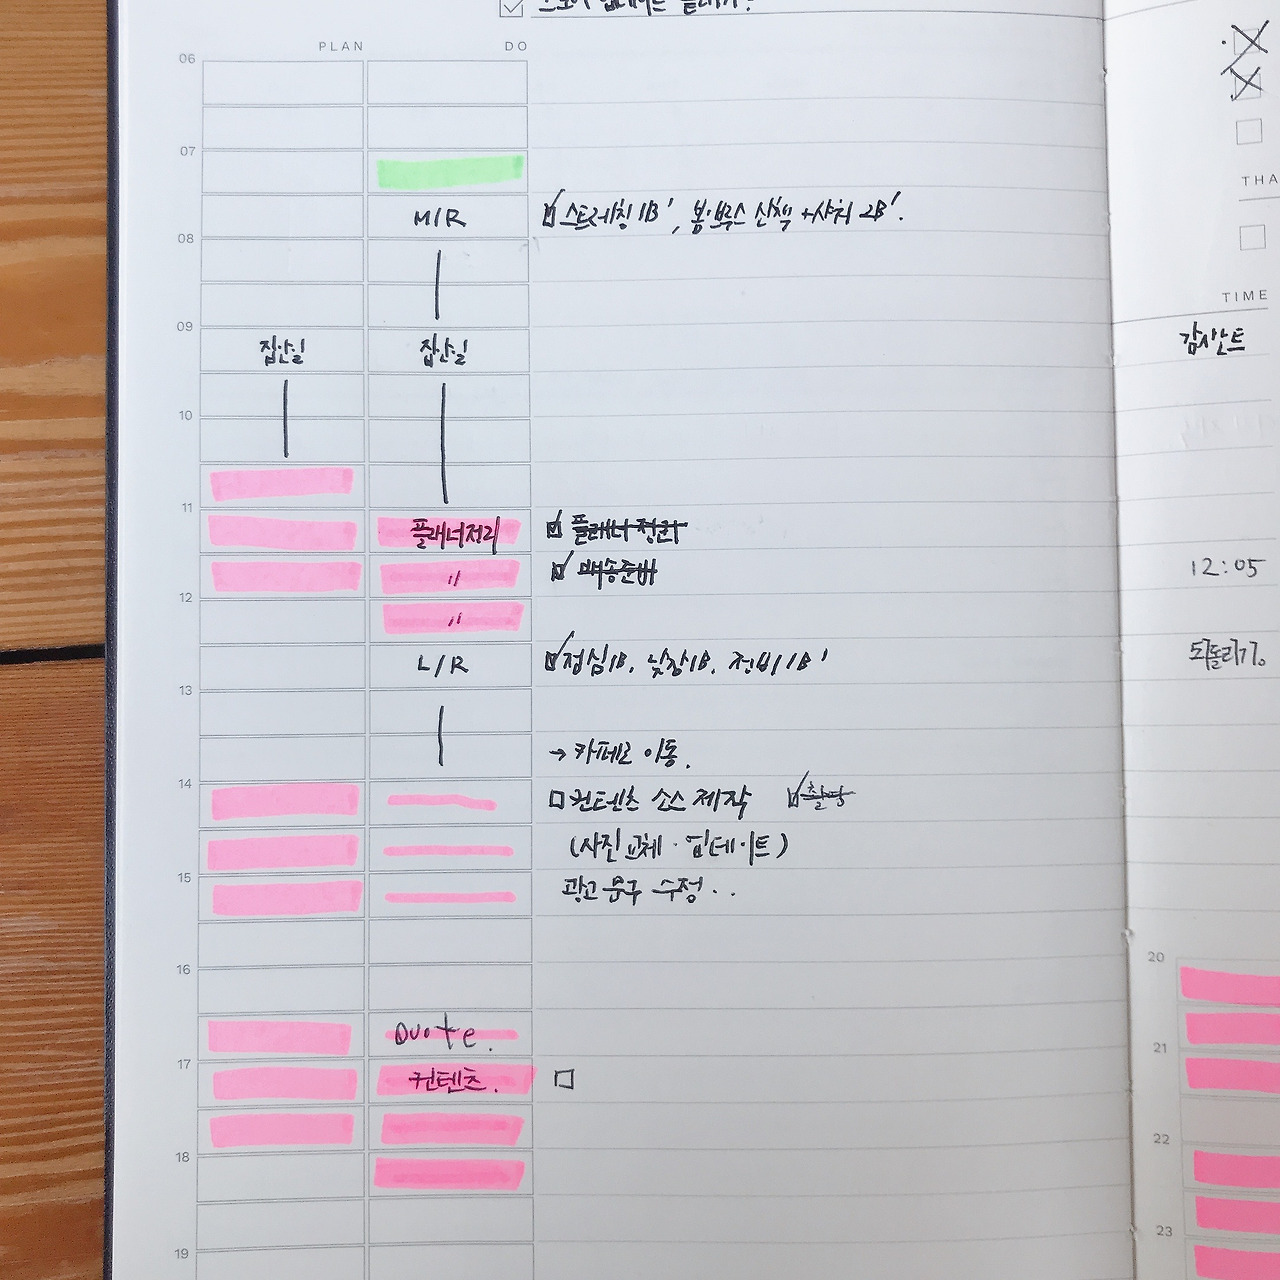 PLAN DO
06
07
M/R 스트레칭 1B', 봄·벅스 산책 + 샤워 2B'.
08
09
집안일 집안일
10
11
플래너정리 플래너 정리
〃 배송준비
12
〃
L/R 점심 1B, 낮잠 1B, 정비 1B'
13
→ 카페로 이동.
14
컨텐츠 소스 제작 촬영
(사진 교체·업데이트)
15
광고 문구 수정..
16
Quote.
17
컨텐츠.
18
19
THA
TIME
감사노트
12:05
되돌리기。
20
21
22
23